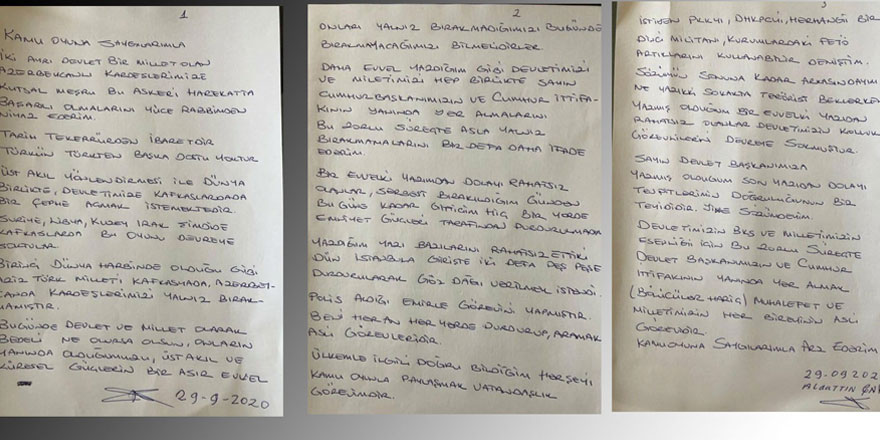 1
KAMU OYUNA SAYGILARIMLA
İKİ AYRI DEVLET BİR MİLLET OLAN
AZERBEYCANLI KARDEŞLERİMİZE
KUTSAL MEŞRU BU ASKERİ HAREKATTA
BAŞARILI OLMALARINI YÜCE RABBİMDEN
NİYAZ EDERİM.
TARİH TEKERRÜRDEN İBARETDİR
TÜRKÜN TÜRKTEN BAŞKA DOSTU YOKTUR
ÜST AKIL YÖNLENDİRMESİ İLE DÜNYA
BİRLİKTE, DEVLETİMİZE KAFKASLARDADA
BİR CEPHE AÇMAK İSTEMEKTEDİR.
SURİYE, LİBYA, KUZEY IRAK ŞİMDİDE
KAFKASLARDA BU OYUNU DEVREYE
SOKTULAR
BİRİNCİ DÜNYA HARBİNDE OLDUĞU GİBİ
AZİZ TÜRK MİLLETİ KAFKASYADA, AZERBEY-
CANDA KARDEŞLERİMİZİ YALNIZ BIRAK-
MAMIŞTIR.
BUGÜNDE DEVLET VE MİLLET OLARAK
BEDELİ NE OLURSA OLSUN, ONLARIN
YANINDA OLDUĞUMUZU, ÜST AKIL VE
KÜRESEL GÜÇLERİN BİR ASIR EVVEL
29-9-2020
2
ONLARI YALNIZ BIRAKMADIĞIMIZI BUGÜNDE
BIRAKMAYACAĞIMIZI BİLMELİDİRLER
DAHA EVVEL YAZDIĞIM GİBİ DEVLETİMİZİ
VE MİLETİMİZİ HEP BİRLİKTE SAYIN
CUMHURBAŞKANIMIZIN VE CUMHUR İTTİFA-
KININ YANINDA YER ALMALARINI
BU ZORLU SÜREÇTE ASLA YALNIZ
BIRAKMAMALARINI BİR DEFA DAHA İFADE
EDERİM.
BİR EVVELKİ YAZIMDAN DOLAYI RAHATSIZ
OLANLAR, SERBEST BIRAKILDIĞIM GÜNDEN
BU GÜNE KADAR GİTTİĞİM HİÇ BİR YERDE
EMNİYET GÜÇLERİ TARAFINDAN DURDURULMADIM
YAZDIĞIM YAZI BAZILARINI RAHATSIZ ETTİKİ
DÜN İSTANBULA GİRİŞTE İKİ DEFA PEŞ PEŞE
DURDURULARAK GÖZ DAĞI VERİLMEK İSTENDİ.
POLİS ALDIĞI EMİRLE GÖREVİNİ YAPMIŞTIR.
BENİ HERAN HER YERDE DURDURUP, ARAMAK
ASLİ GÖREVLERİDİR.
ÜLKEMLE İLGİLİ DOĞRU BİLDİĞİM HERŞEYİ
KAMU OYUNLA PAYLAŞMAK VATANDAŞLIK
GÖREVİMDİR.
3
İSTİYEN PKKYI, DHKPCLİ, HERHANGİ BİR
DİNCİ MİLİTANI, KURUMLARDAKİ FETÖ
ARTIKLARINI KULLANABİLİR DEMİŞTİM.
SÖZÜMÜN SONUNA KADAR ARKASINDAYIM
NE YAZIKKİ SOKAKTA TERÖRİST BEKLERKEN
YAZMIŞ OLDUĞUM BİR EVVELKİ YAZIDAN
RAHATSIZ OLANLAR DEVLETİMİZİN KOLLUK
GÖREVLİLERİNİ DEVREYE SOKMUŞTUR.
SAYIN DEVLET BAŞKANIMIZA
YAZMIŞ OLDUĞUM SON YAZIDAN DOLAYI
TESPİTLERİMİN DOĞRULUĞUNUN BİR
TEYİDİDİR. YİNE SÖZÜMDEYİM.
DEVLETİMİZİN BKS VE MİLLETİMİZİN
ESENLİĞİ İÇİN BU ZORLU SÜREÇTE
DEVLET BAŞKANIMIZIN VE CUMHUR
İTTİFAKININ YANINDA YER ALMAK
(BÖLÜCÜLER HARİÇ) MUHALEFET VE
MİLLETİMİZİN HER BİREYİNİN ASLİ
GÖREVİDİR.
KAMUOYUNA SAYGILARIMLA ARZ EDERİM
29.09.202
ALAATTİN